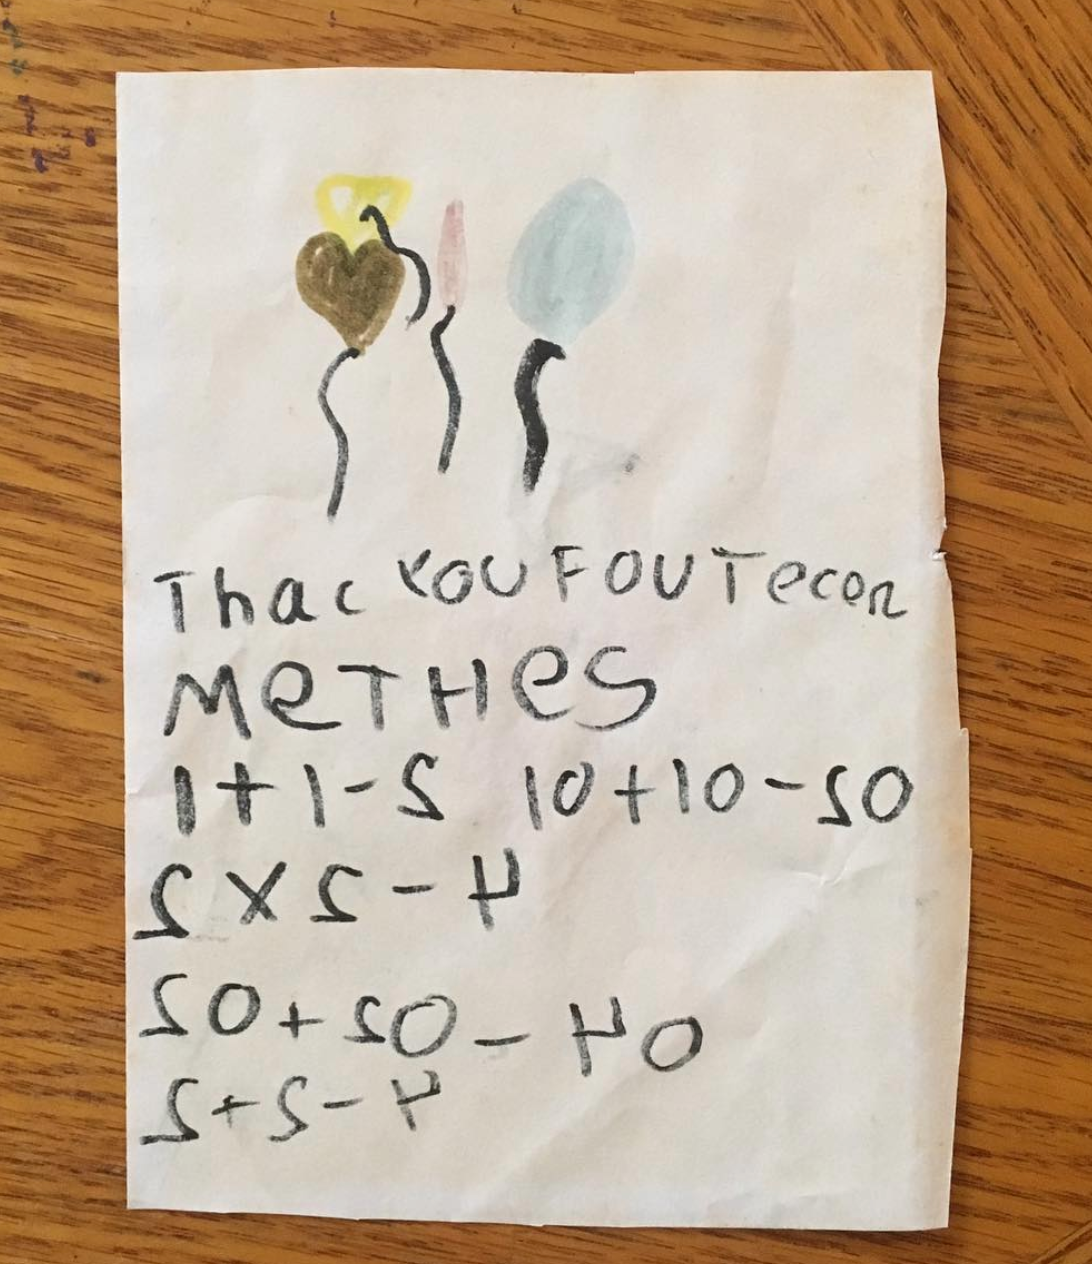 Thac YOU FOU Tecen
MeTHes
1+1-2 10+10-20
2x2-4
20+20-40
2+2-4